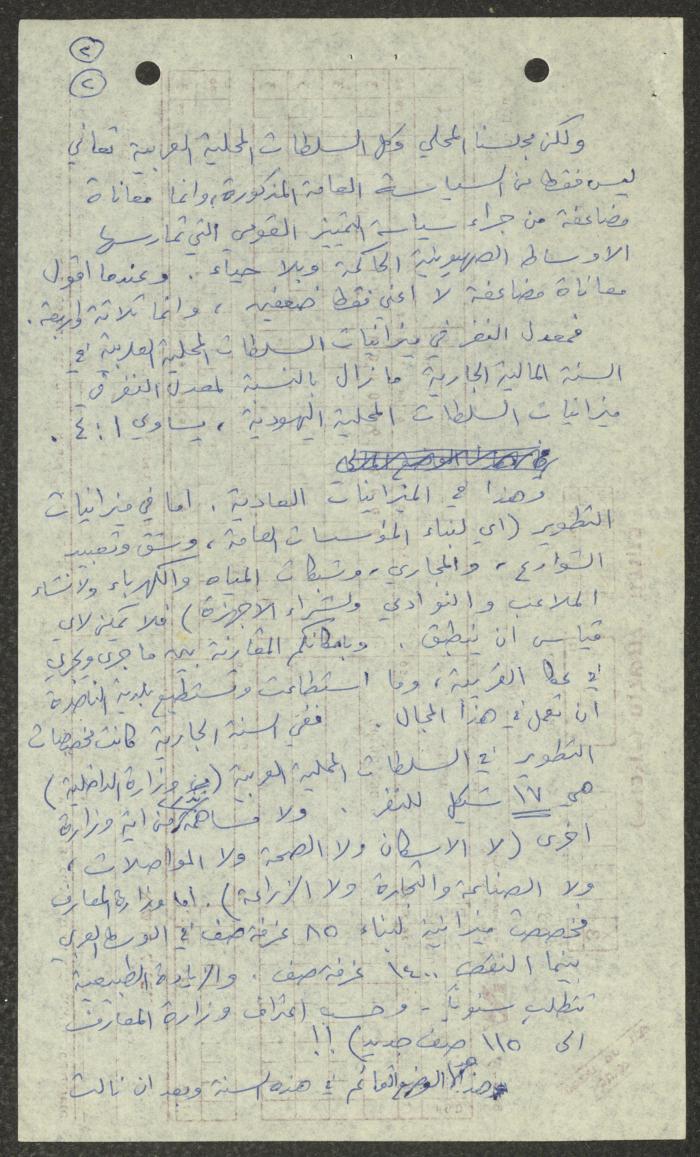 ٣
٢
ولكن مجلسنا المحلي وكل السلطات المحلية العربية تعاني
ليس فقط من السياسة العامة المذكورة، وانما معاناة
مضاعفة من جراء سياسة التمييز القومي التي تمارسها
الاوساط الصهيونية الحاكمة وبلا حياء. وعندما اقول
معاناة مضاعفة لا اعني فقط ضعفين، وانما ثلاثة واربعة.
فمعدل الفرد في ميزانيات السلطات المحلية العربية في
السنة المالية الجارية ما زال بالنسبة لمعدل الفرد في
ميزانيات السلطات المحلية اليهودية، يساوي ١:٤.
وهذا في الميزانيات العادية. اما في ميزانيات
التطوير (اي لبناء المؤسسات العامة، وشق وتعبيد
الشوارع، والمجاري، وشبكات المياه والكهرباء ولانشاء
الملاعب والنوادي ولشراء الاجهزة) فلا يمكن لاي
قياس ان ينطبق. وبامكانكم المقارنة بين ما جرى ويجري
في عكا القريبة، وما استطاعت وتستطيع بلدية الناصرة
ان تعمل في هذا المجال. ففي السنة الجارية كانت مخصصات
التطوير في السلطات المحلية العربية (من وزارة الداخلية)
هي ١٧ شيكل للنفر. ولا مساهمة من اية وزارة
اخرى (لا الاسكان ولا الصحة ولا المواصلات،
ولا الصناعة والتجارة ولا الزراعة). اما وزارة المعارف
فخصصت ميزانية لبناء ٨٥ غرفة صف في الوسط العربي
بينما النقص ١٤٠٠ غرفة صف. والزيادة الطبيعية
تتطلب سنوياً - وحسب اعتراف وزارة المعارف
الى ١١٥ صف جديد) !!
هذا هو الوضع القائم في هذه السنة وبعد ان نالت